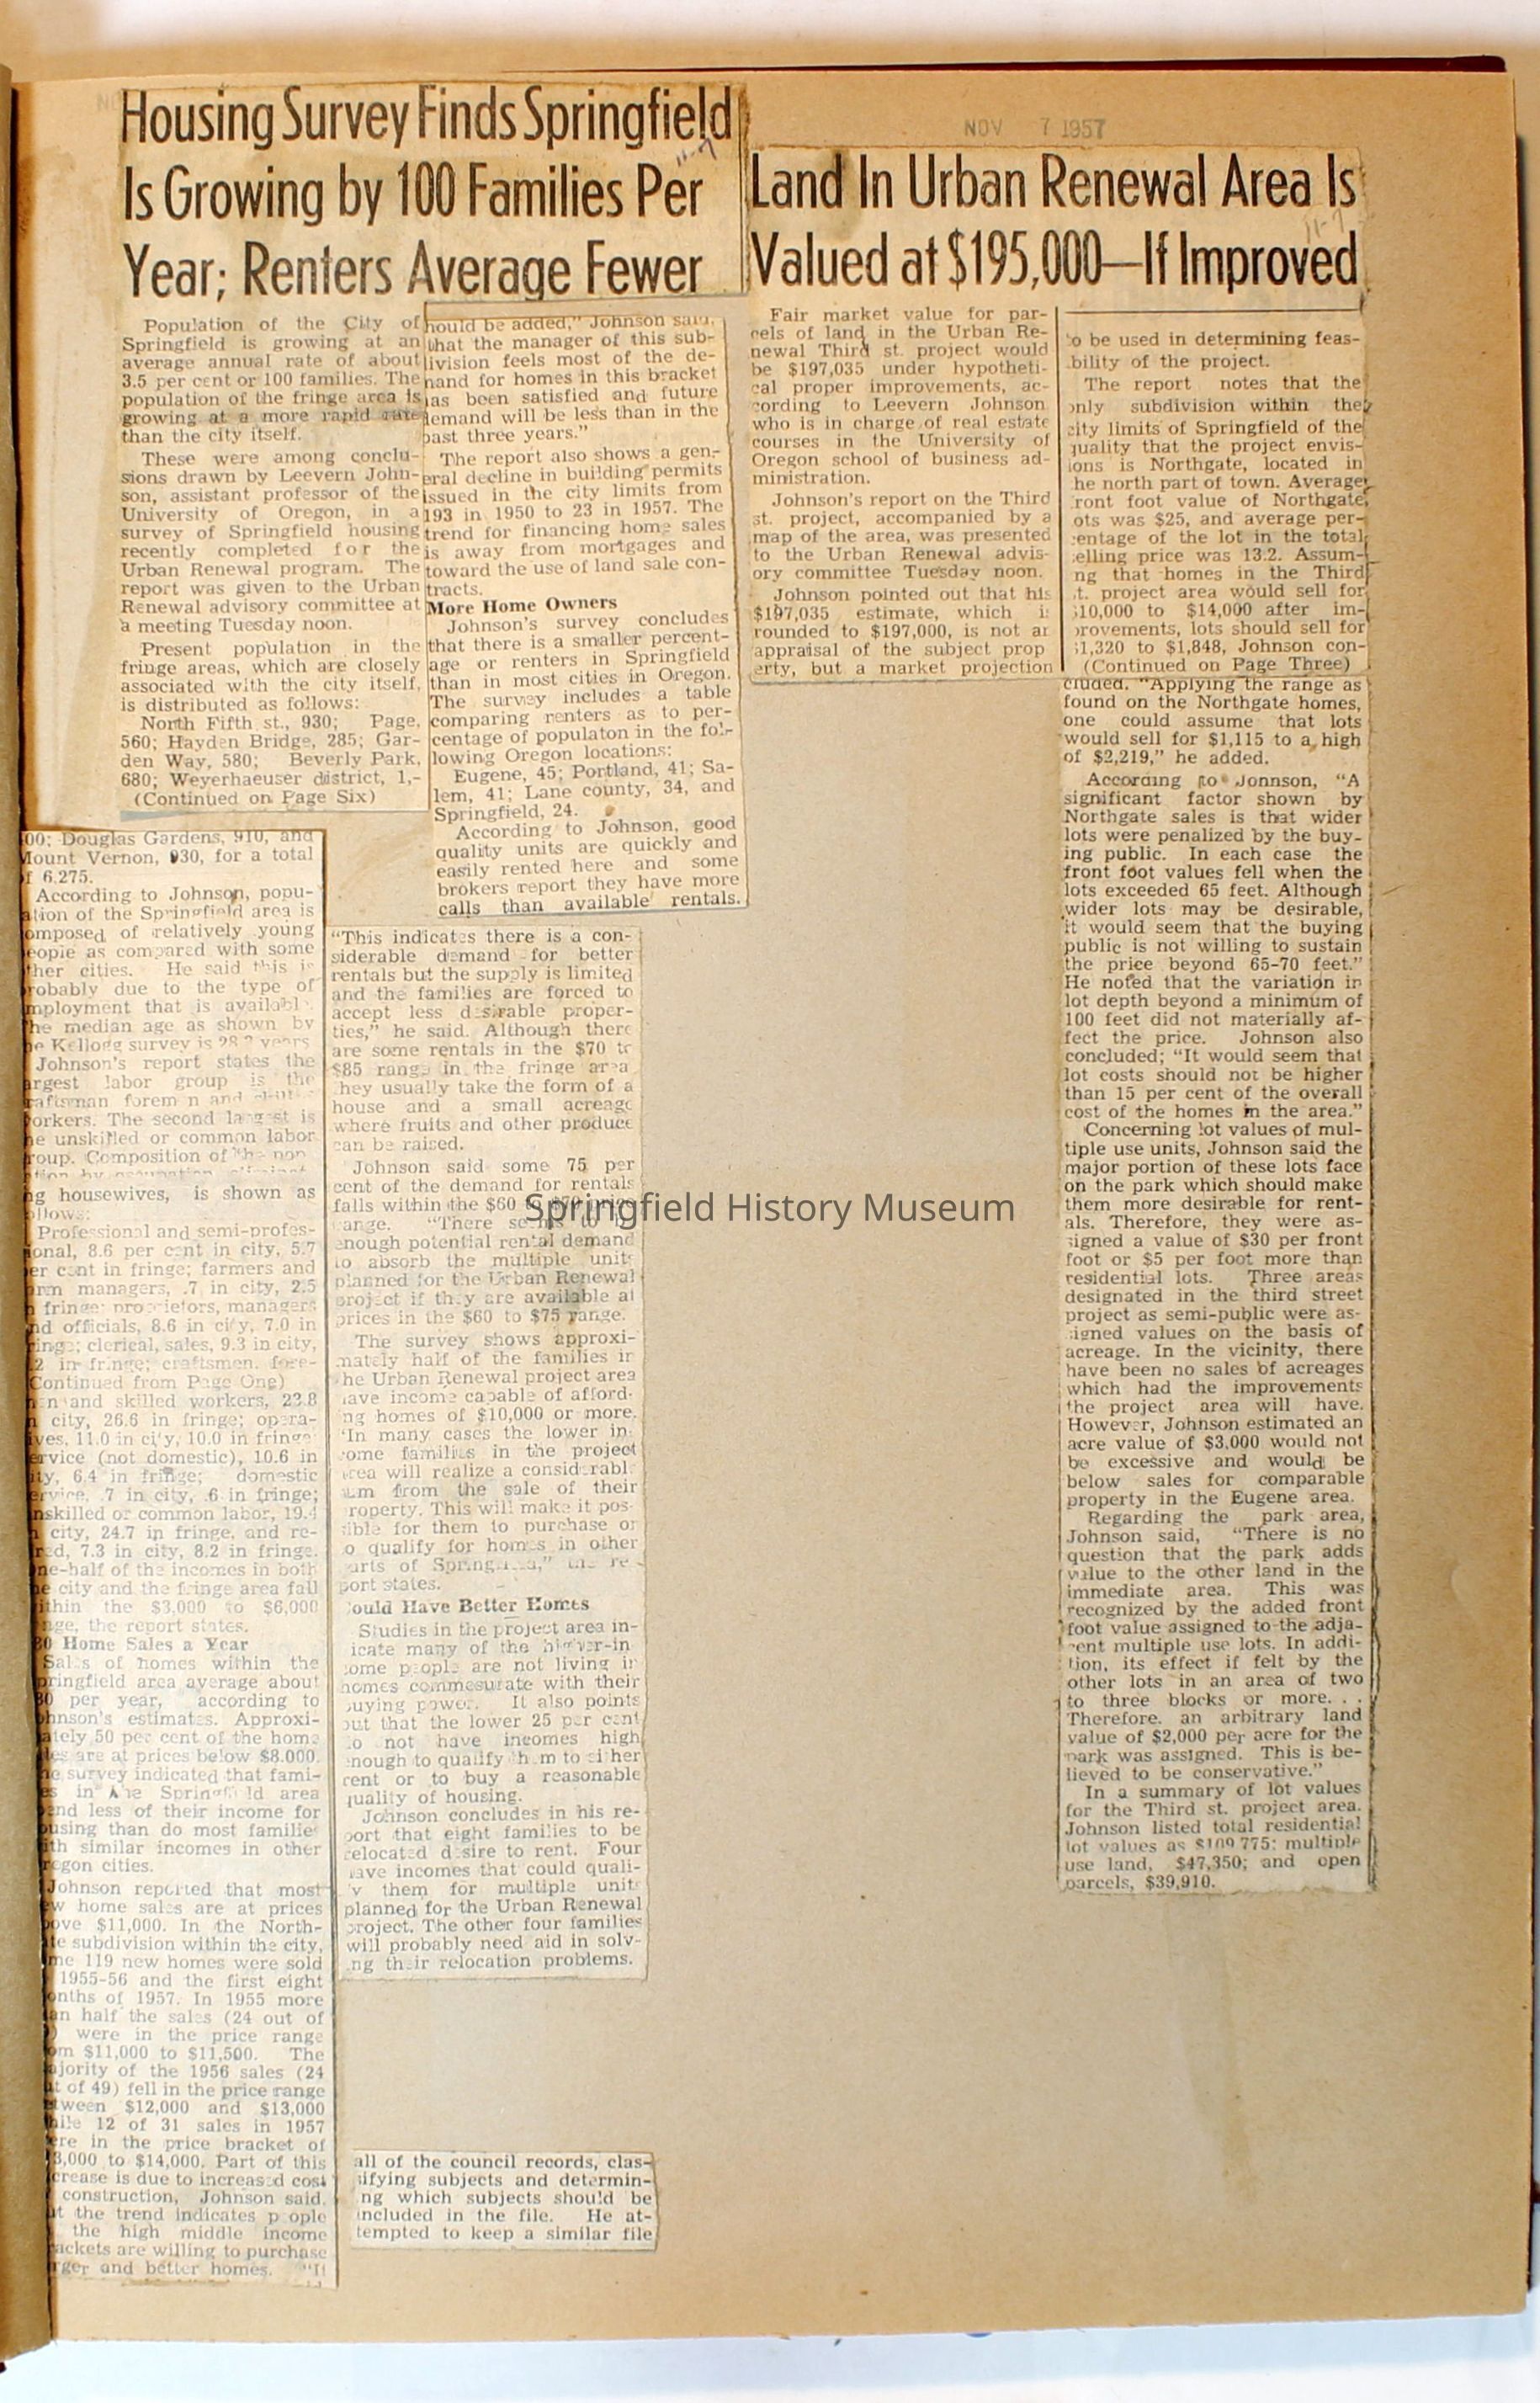 Housing Survey Finds Springfield
Is Growing by 100 Families Per
Year; Renters Average Fewer
11-7
Population of the City of
Springfield is growing at an
average annual rate of about
3.5 per cent or 100 families. The
population of the fringe area is
growing at a more rapid rate
than the city itself.
These were among conclu-
sions drawn by Leevern John-
son, assistant professor of the
University of Oregon, in a
survey of Springfield housing
recently completed for the
Urban Renewal program. The
report was given to the Urban
Renewal advisory committee at
a meeting Tuesday noon.
Present population in the
fringe areas, which are closely
associated with the city itself,
is distributed as follows:
North Fifth st., 930; Page,
560; Hayden Bridge, 285; Gar-
den Way, 580; Beverly Park,
680; Weyerhaeuser district, 1,-
(Continued on Page Six)
00; Douglas Gardens, 910, and
Mount Vernon, 930, for a total
f 6,275.
According to Johnson, popu-
ation of the Springfield area is
omposed of relatively young
eople as compared with some
ther cities. He said this is
robably due to the type of
mployment that is available.
he median age as shown by
he Kellogg survey is years
Johnson's report states the
argest labor group is the
raftsman foremen and
orkers. The second largest is
he unskilled or common labor
roup. Composition of the pop
ation by occupation
ng housewives, is shown as
ollows:
Professional and semi-profes-
ional, 8.6 per cent in city, 5.7
er cent in fringe; farmers and
arm managers, .7 in city, 2.5
n fringe; proprietors, managers
nd officials, 8.6 in city, 7.0 in
ringe; clerical, sales, 9.3 in city,
.2 in fringe; craftsmen, fore-
(Continued from Page One)
en and skilled workers, 23.8
n city, 26.6 in fringe; opera-
ives, 11.0 in city, 10.0 in fringe
ervice (not domestic), 10.6 in
ity, 6.4 in fringe; domestic
ervice, .7 in city, .6 in fringe;
nskilled or common labor, 19.4
n city, 24.7 in fringe, and re-
red, 7.3 in city, 8.2 in fringe.
ne-half of the incomes in both
he city and the fringe area fall
ithin the $3,000 to $6,000
nge, the report states.
30 Home Sales a Year
Sales of homes within the
pringfield area average about
30 per year, according to
ohnson's estimates. Approxi-
ately 50 per cent of the home
les are at prices below $8.000.
he survey indicated that fami-
es in the Springfield area
end less of their income for
ousing than do most familie
ith similar incomes in other
regon cities.
Johnson reported that most
ew home sales are at prices
ove $11,000. In the North-
te subdivision within the city,
me 119 new homes were sold
1955-56 and the first eight
onths of 1957. In 1955 more
an half the sales (24 out of
) were in the price range
om $11,000 to $11,500. The
ajority of the 1956 sales (24
t of 49) fell in the price range
tween $12,000 and $13,000
hile 12 of 31 sales in 1957
ere in the price bracket of
3,000 to $14,000. Part of this
crease is due to increased cost
construction, Johnson said,
ut the trend indicates people
the high middle income
ackets are willing to purchase
rger and better homes. "It
hould be added," Johnson said,
that the manager of this sub-
division feels most of the de-
mand for homes in this bracket
has been satisfied and future
demand will be less than in the
past three years."
The report also shows a gen-
eral decline in building permits
issued in the city limits from
193 in 1950 to 23 in 1957. The
trend for financing home sales
is away from mortgages and
toward the use of land sale con-
tracts.
More Home Owners
Johnson's survey concludes
that there is a smaller percent-
age or renters in Springfield
than in most cities in Oregon.
The survey includes a table
comparing renters as to per-
centage of populaton in the fol-
lowing Oregon locations:
Eugene, 45; Portland, 41; Sa-
lem, 41; Lane county, 34, and
Springfield, 24.
According to Johnson, good
quality units are quickly and
easily rented here and some
brokers report they have more
calls than available rentals.
"This indicates there is a con-
siderable demand for better
rentals but the supply is limited
and the families are forced to
accept less desirable proper-
ties," he said. Although there
are some rentals in the $70 to
$85 range in the fringe area
hey usually take the form of a
house and a small acreage
where fruits and other produce
can be raised.
Johnson said some 75 per
cent of the demand for rentals
falls within the $60 price
range. "There seems to
enough potential rental demand
to absorb the multiple units
planned for the Urban Renewal
project if they are available at
prices in the $60 to $75 range.
The survey shows approxi-
mately half of the families in
he Urban Renewal project area
have income capable of afford-
ng homes of $10,000 or more.
'In many cases the lower in-
come families in the project
area will realize a considerabl
sum from the sale of their
roperty. This will make it pos-
sible for them to purchase or
o qualify for homes in other
arts of Springfield," the re-
port states.
ould Have Better Homes
Studies in the project area in-
icate many of the higher-in
come people are not living in
homes commesurate with their
buying power. It also points
out that the lower 25 per cent
o not have incomes high
enough to qualify them to either
rent or to buy a reasonable
quality of housing.
Johnson concludes in his re-
port that eight families to be
relocated desire to rent. Four
have incomes that could quali-
y them for multiple units
planned for the Urban Renewal
project. The other four families
will probably need aid in solv-
ng their relocation problems.
all of the council records, clas-
sifying subjects and determin-
ng which subjects should be
included in the file. He at-
tempted to keep a similar file
NOV 7 1957
Land In Urban Renewal Area Is
Valued at $195,000—If Improved
11-7
Fair market value for par-
cels of land in the Urban Re-
newal Third st. project would
be $197,035 under hypotheti-
cal proper improvements, ac-
cording to Leevern Johnson
who is in charge of real estate
courses in the University of
Oregon school of business ad-
ministration.
Johnson's report on the Third
st. project, accompanied by a
map of the area, was presented
to the Urban Renewal advis-
ory committee Tuesday noon.
Johnson pointed out that his
$197,035 estimate, which is
rounded to $197,000, is not an
appraisal of the subject prop
erty, but a market projection
to be used in determining feas-
bility of the project.
The report notes that the
only subdivision within the
city limits of Springfield of the
quality that the project envis-
ions is Northgate, located in
he north part of town. Average
ront foot value of Northgate
ots was $25, and average per-
centage of the lot in the total
selling price was 13.2. Assum-
ng that homes in the Third
t. project area would sell for
$10,000 to $14,000 after im-
provements, lots should sell for
$1,320 to $1,848, Johnson con-
(Continued on Page Three)
cluded. "Applying the range as
found on the Northgate homes,
one could assume that lots
would sell for $1,115 to a high
of $2,219," he added.
According to Johnson, "A
significant factor shown by
Northgate sales is that wider
lots were penalized by the buy-
ing public. In each case the
front foot values fell when the
lots exceeded 65 feet. Although
wider lots may be desirable,
it would seem that the buying
public is not willing to sustain
the price beyond 65-70 feet."
He noted that the variation in
lot depth beyond a minimum of
100 feet did not materially af-
fect the price. Johnson also
concluded; "It would seem that
lot costs should not be higher
than 15 per cent of the overall
cost of the homes in the area."
Concerning lot values of mul-
tiple use units, Johnson said the
major portion of these lots face
on the park which should make
them more desirable for rent-
als. Therefore, they were as-
signed a value of $30 per front
foot or $5 per foot more than
residential lots. Three areas
designated in the third street
project as semi-public were as-
signed values on the basis of
acreage. In the vicinity, there
have been no sales of acreages
which had the improvements
the project area will have.
However, Johnson estimated an
acre value of $3,000 would not
be excessive and would be
below sales for comparable
property in the Eugene area.
Regarding the park area,
Johnson said, "There is no
question that the park adds
value to the other land in the
immediate area. This was
recognized by the added front
foot value assigned to the adja-
cent multiple use lots. In addi-
tion, its effect if felt by the
other lots in an area of two
to three blocks or more. . .
Therefore, an arbitrary land
value of $2,000 per acre for the
park was assigned. This is be-
lieved to be conservative."
In a summary of lot values
for the Third st. project area.
Johnson listed total residential
lot values as $109,775; multiple
use land, $47,350; and open
parcels, $39,910.
Springfield History Museum